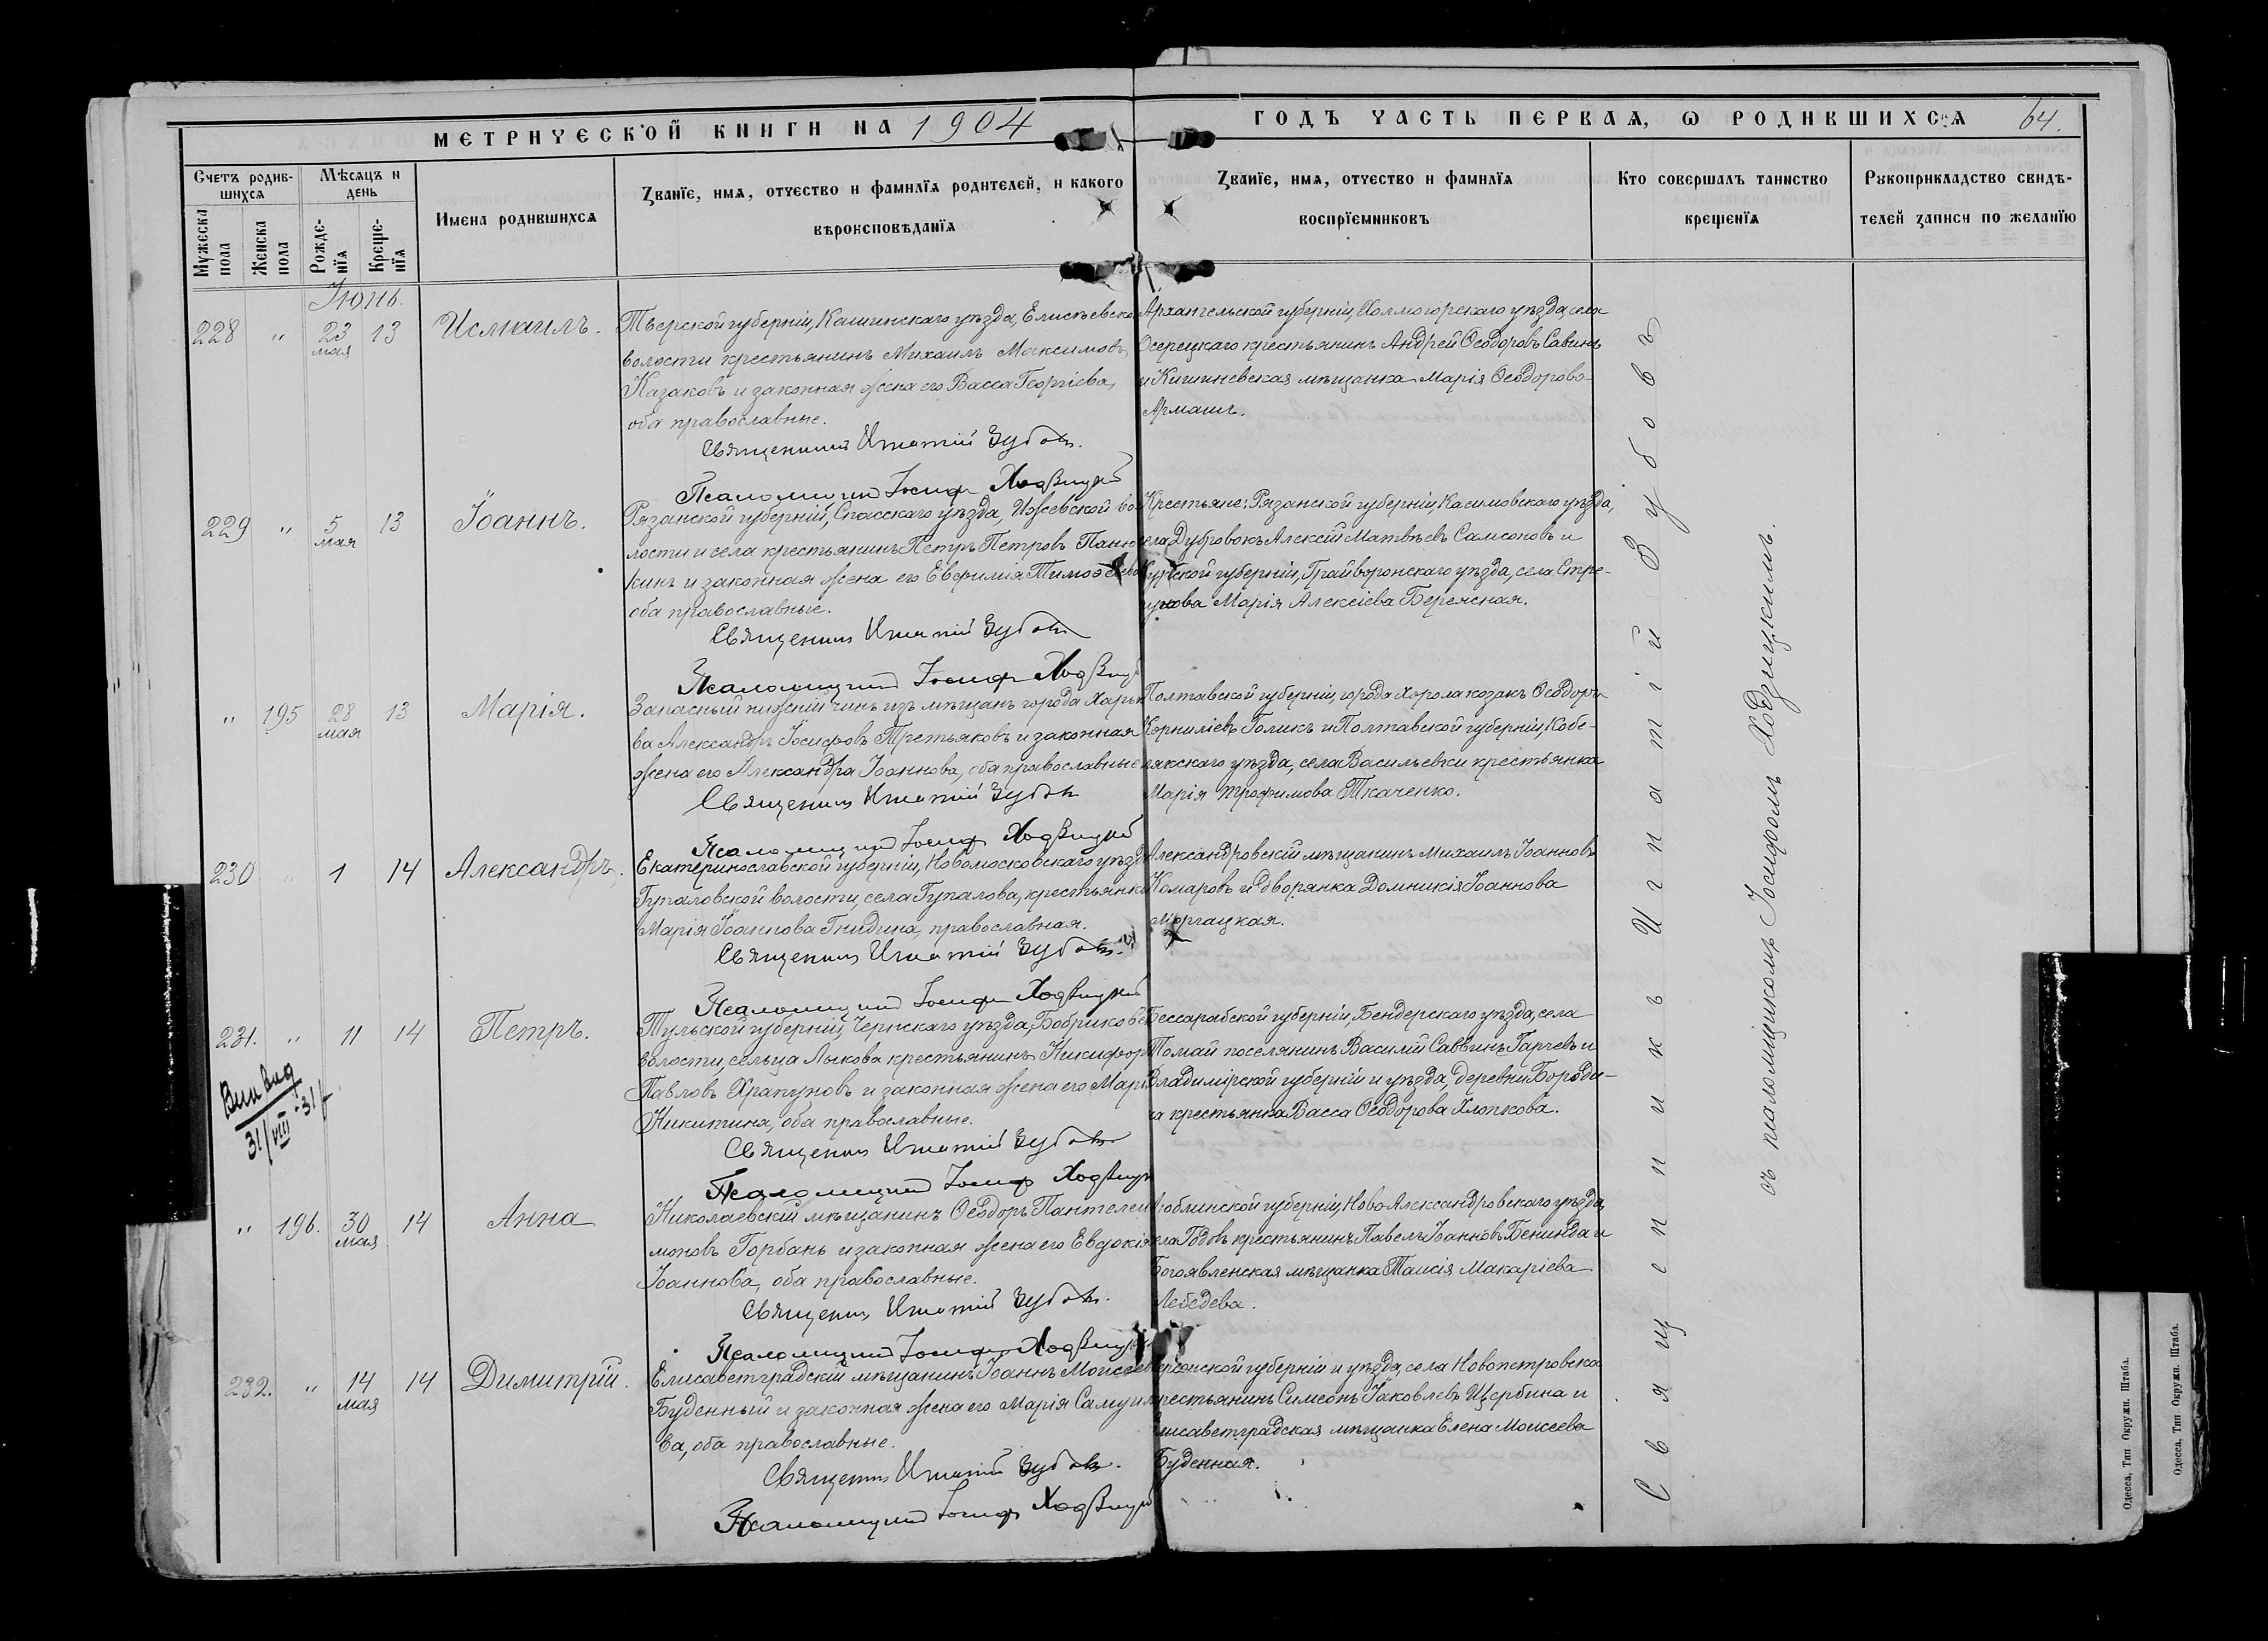 МЕТРИЧЕСКОЙ КНИГИ НА 1904
ГОДЪ ЧАСТЬ ПЕРВАЯ, Ѡ РОДИВШИХСЯ 64.
Счетъ родив-
шихся
Мужеска пола
Женска пола
Мѣсяцъ и
день
Рожде-
нїя
Креще-
нїя
Имена родившихся
Званїе, имя, отчество и фамилїя родителей, и какого
вѣроисповѣданїя
Званїе, имя, отчество и фамилїя
воспрїемниковъ
Кто совершалъ таинство
крещенїя
Рукоприкладство свидѣ-
телей записи по желанїю
Іюнь.
228 " 23 мая 13 Исмаилъ.
Тверской губерніи, Кашинскаго уѣзда, Елисѣевско
волости крестьянинъ Михаилъ Максимовъ
Казаковъ и законная жена его Васса Георгіева,
оба православные.
Священникъ Игнатій Зубовъ.
Псаломщикъ Іосифъ Ходзицкій
Архангельской губерніи, Холмогорскаго уѣзда, села
Осерецкаго крестьянинъ Андрей Ѳеодоровъ Савинъ
и Кишиневская мѣщанка Марія Ѳеодорова
Армашъ.
229 " 5 мая 13 Іоаннъ.
Рязанской губерніи, Спасскаго уѣзда, Ижевской во
лости и села крестьянинъ Петръ Петровъ Паню
кинъ и законная жена его Евфимія Тимоѳеева
оба православные.
Священникъ Игнатій Зубовъ
Псаломщикъ Іосифъ Ходзицкій
Крестьяне: Рязанской губерніи, Касимовскаго уѣзда,
села Дубровокъ Алексій Матвѣевъ Самсоновъ и
Курской губерніи, Грайворонскаго уѣзда, села Стре-
гунова Марія Алексіева Бережная.
" 195 28 мая 13 Марія.
Запасный нижній чинъ изъ мѣщанъ города Харьк
ва Александръ Іосифовъ Третьяковъ и законная
жена его Александра Іоаннова, оба православные
Священникъ Игнатій Зубовъ
Псаломщикъ Іосифъ Ходзицкій
Полтавской губерніи, города Хорола козакъ Ѳеодоръ
Корниліевъ Голикъ и Полтавской губерніи, Кобе-
лякскаго уѣзда, села Васильевки крестьянка
Марія Трофимова Ткаченко.
230 " 1 14 Александръ.
Екатеринославской губерніи, Новомосковскаго уѣзд
Гупаловской волости, села Гупалова, крестьянка
Марія Іоаннова Гнидина, православная.
Священникъ Игнатій Зубовъ.
Псаломщикъ Іосифъ Ходзицкій
Александровскій мѣщанинъ Михаилъ Іоанновъ
Комаровъ и дворянка Домникія Іоаннова
Моргацкая.
231. " 11 14 Петръ.
31/VIII-31
Тульской губерніи, Чернскаго уѣзда, Бобриков
волости, сельца Лыкова крестьянинъ Никифор
Павловъ Храпуновъ и законная жена его Марі
Никитина, оба православные.
Священникъ Игнатій Зубовъ
Псаломщикъ Іосифъ Ходзицк
Бессарабской губерніи, Бендерскаго уѣзда, села
Томай поселянинъ Василій Саввинъ Гарчевъ и
Владимірской губерніи и уѣзда, деревни Бороди-
на крестьянка Васса Ѳеодорова Хлопкова.
" 196. 30 мая 14 Анна
Николаевскій мѣщанинъ Ѳеодоръ Пантелеи
моновъ Горбань и законная жена его Евдокія
Іоаннова, оба православные.
Священникъ Игнатій Зубовъ.
Псаломщикъ Іосифъ Ходзицкій
Люблинской губерніи, Ново Александровскаго уѣзда,
села Годовъ крестьянинъ Павелъ Іоанновъ Бенинда и
Богоявленская мѣщанка Таисія Макаріева
Лебедева.
232. " 14 мая 14 Димитрій.
Елисаветградскій мѣщанинъ Іоаннъ Моисеев
Буденный и законная жена его Марія Самуил
ва, оба православные.
Священникъ Игнатій Зубовъ.
Псаломщикъ Іосифъ Ходзицкій
Херсонской губерніи и уѣзда, села Новопетровска
крестьянинъ Симеонъ Іаковлевъ Щербина и
Елисаветградская мѣщанка Елена Моисеева
Буденная.
Священникъ Игнатій Зубовъ
съ псаломщикомъ Іосифомъ Ходзицкимъ.
Одесса, Тип Окружн. Штаба.
Одесса, Тип Окружн. Штаба.